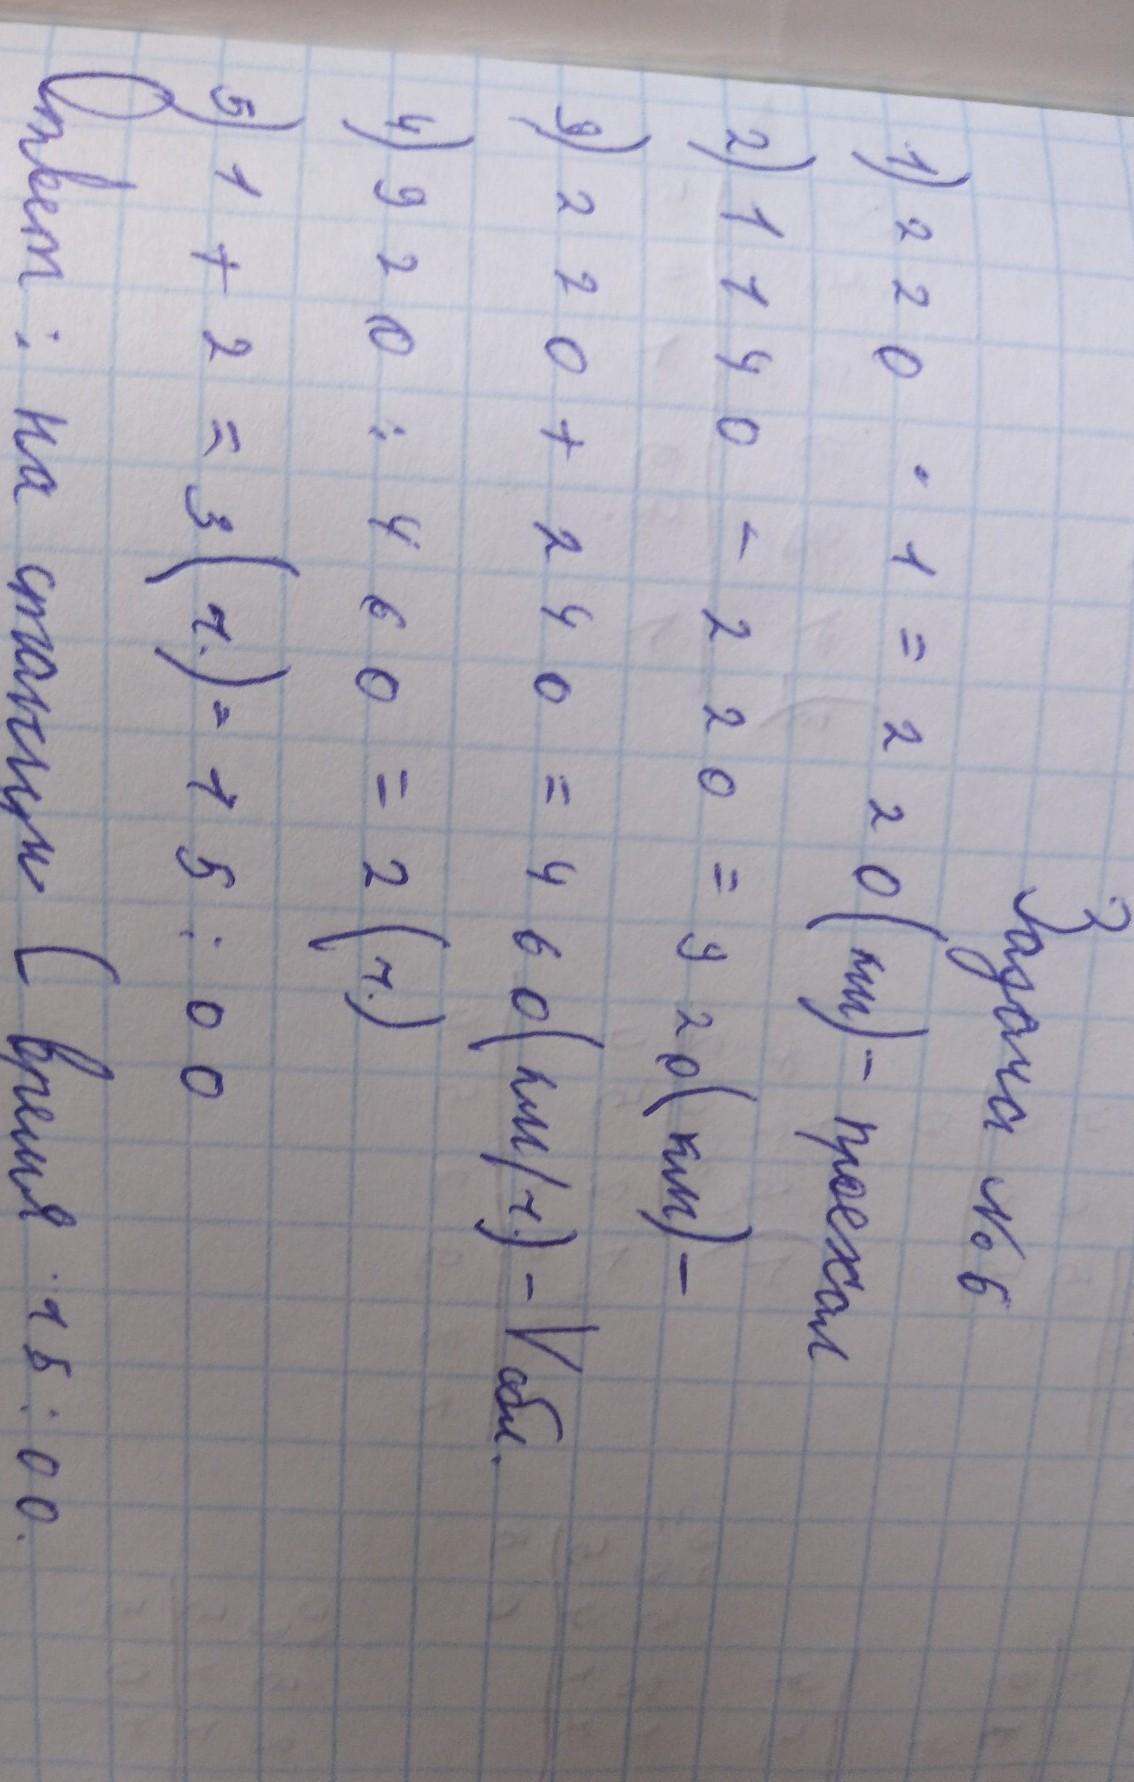 Задача № 6
1) 220 · 1 = 220 (км) - проехал
2) 1140 - 220 = 920 (км) -
3) 220 + 240 = 460 (км/ч.) - V сбл.
4) 920 : 460 = 2 (ч.)
5) 1 + 2 = 3 (ч.) = 15 : 00
Ответ : на станции ( время 15 : 00.